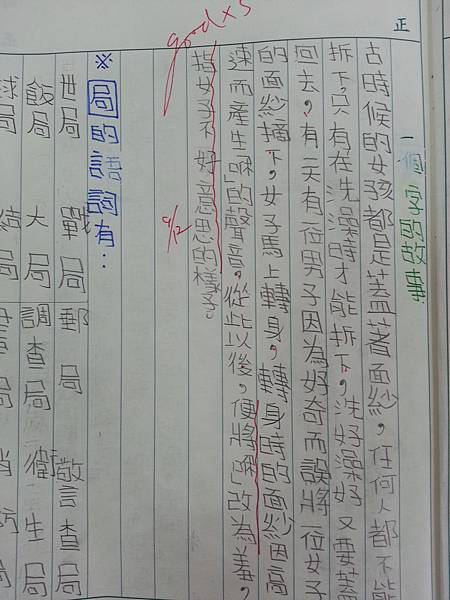 正
一個字的故事
古時候的女孩都是蓋著面紗,任何人都不能
拆下,只有在洗澡時才能拆下,洗好澡又要蓋
回去,有一天有一位男子因為好奇而誤將一位女子
的面紗摘下,女子馬上轉身,轉身時的面紗因高
速而產生咻」的聲音,從此以後,便將咻」改為羞,
指女子不好意思的樣子。
good×5
9/12
※局的語詞有:
世局 戰局 郵局 警查局
飯局 大局 調查局 衛生局
球局 結局